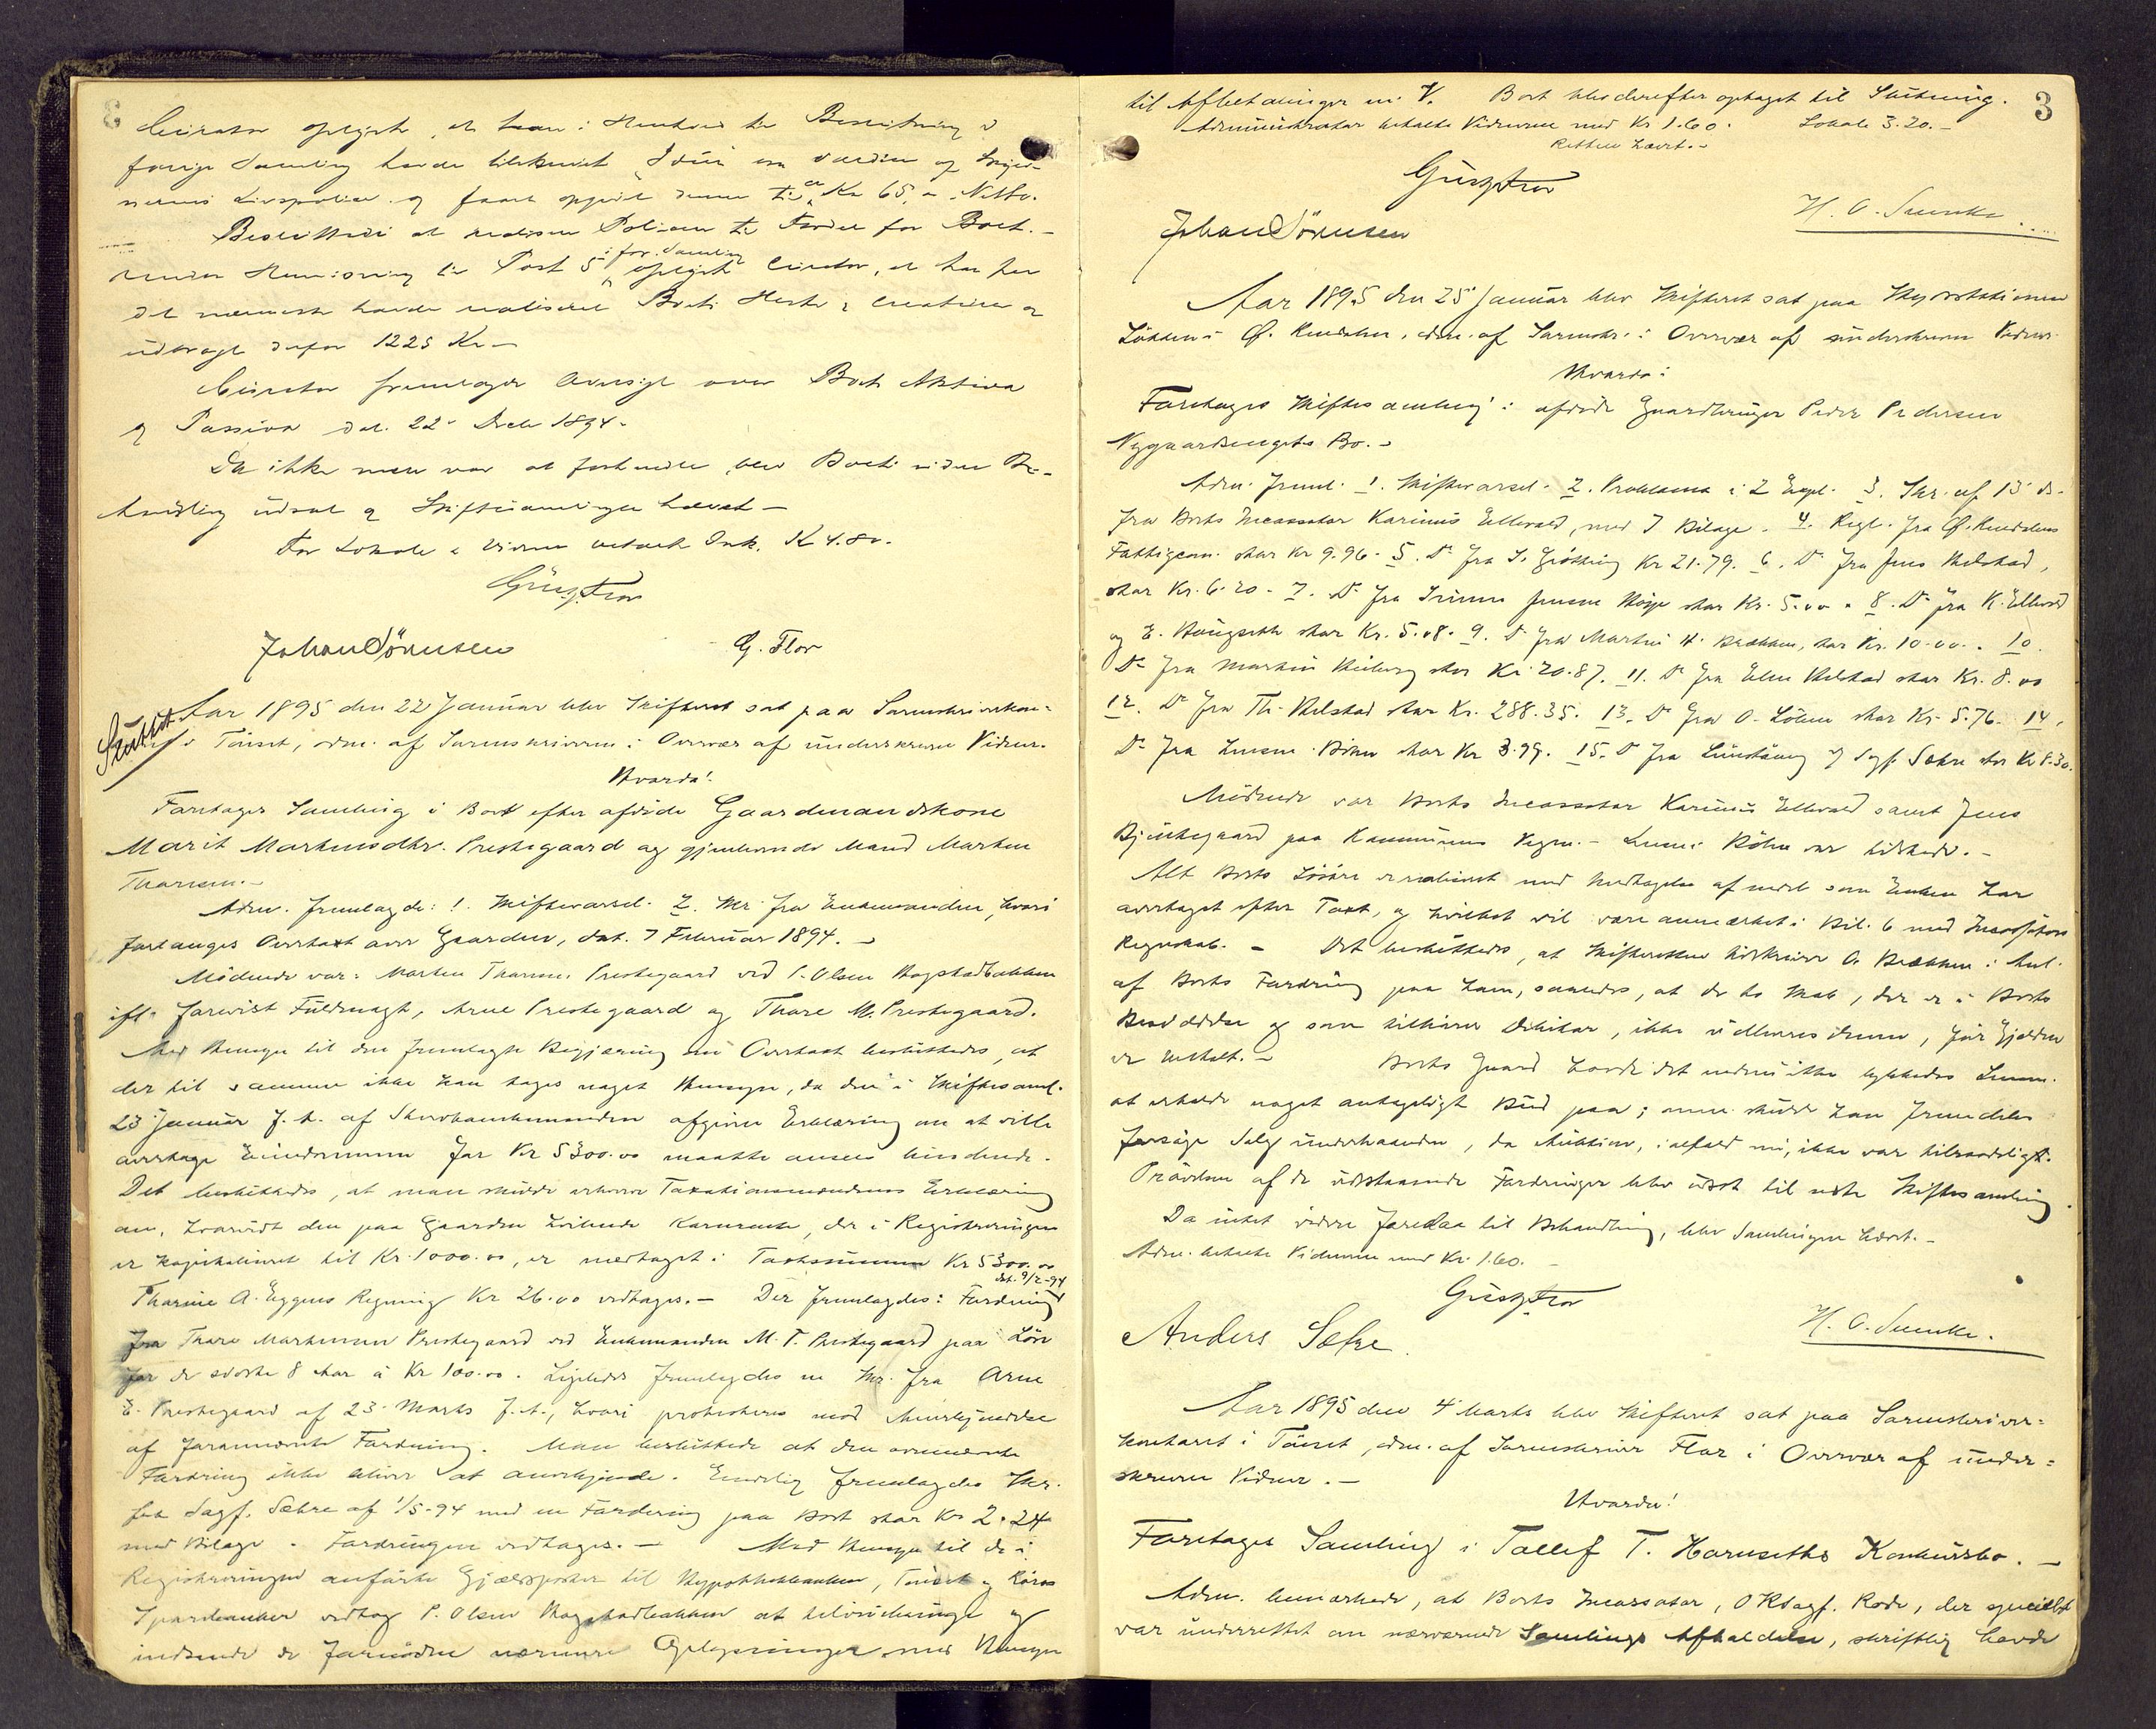 Curator oplyste, at han i Henhold til Beslutning i
forrige Samling havde tilskrevet Idun om Værdien af
Livspolice og faaet opgivet denne til ca Kr 65,- Netto.
Besluttedes at realisere Policen til Fordel for Boet.-
Under Henvisning til Post 5 i for. Samling oplyste Curator, at han har
det nærmeste havde realiseret Boets Heste & Creaturer og
udbragt derfor 1225 Kr -
Curator fremlagde Oversigt over Boets Aktiva
og Passiva dat. 22- Decbr 1894.
Da ikke mere var at forhandle, blev Boets videre Be-
handling udsat og Skiftesamlingen hævet -
For Lokale & Vidner betalt Ink. K 4.80.
Gusztrov
Johan Sörensen G. Flor
Sluttet
Aar 1895 den 22 Januar blev Skifteret sat paa Sorenskriverkon=
i Tönset, adm. af Sorenskriveren i Overvær af underskrevne Vidner.
Hvorda!
Foretages Samling i Boet efter afdöde Gaardmandskone
Marit Martensdtr. Prestegaard og gjenlevende Mand Marten
Thoresen.-
Adm. fremlagde: 1. Skiftevarsel. 2. Skr fra Enkemanden, hvori
forlanges Overtaxt over Gaarden, dat. 7 Februar 1894. -
Mödende var: Marten Thoresen Prestegaard ved P. Olsen Kogstadbakken
ifl. forevist Fuldmagt, Arne Prestegaard og Thore M. Prestegaard.
Med Hensyn til den fremlagte Begjæring om Overtaxt besluttedes, at
der til samme ikke kan tages noget Hensyn, da den i Skiftesaml.
23 Januar f. A. af Enkemanden afgivne Erklæring om at ville
overtage Eiendommen for Kr 5300.00 maatte ansees bindende.
Det besluttedes, at man skulde erhverve Taxationsmændenes Erklæring
om, hvorvidt den paa Gaarden hvilende Kaarrente, der i Registreringen
er kapitaliseret til Kr. 1000.00, er medtaget i Taxtsummen Kr 5300.00
Thorine A. Eggens Regning dat. 9/2-94 Kr 26.00 vedtages.- Der fremlagdes: Fordring
fra Thore Martensen Prestegaard ved Enkemanden M. T. Prestegaard paa Lön
for de sidste 8 Aar à Kr 100.00. Ligeledes fremlagdes en Skr. fra Arne
E. Prestegaard af 23 Marts f. A., hvori protesteres mod Anerkjendelse
af forannævnte Fordring. Man besluttede at den omnævnte
Fordring ikke bliver at anerkjende. Endelig fremlagdes Skr.
fra Sagf. Sæhre af 1/5-94 med en Fordring paa Boet stor Kr 2.24
med Bilage. Fordringen vedtages. - Med Hensyn til de i
Registreringen anförte Gjældsposter til Hypothekbanken, Tönset og Röros
Sparebanker vedtog P. Olsen Kogstadbakken at tilveiebringe og
indsende de fornödne nærmere Oplysninger med Hensyn
3
til Afbetalinger m. V. Boet blev derefter optaget til Slutning.
Administrator betalte Vidnerne med Kr 1.60. Lokale 3.20.-
Retten hævet.-
Gusztrov
Johan Sörensen H. O. Suenke
Aar 1895 den 25 Januar blev Skifteret sat paa Skysstationen
Lökken i Ö. Rendalen, adm. af Sorenskr. i Overvær af underskrevne Vidner.
Hvorda:
Foretages Skiftesamling i afdöde Gaardbruger Peder Pedersen
Nygaardsengets Bo. -
Adm. freml. 1. Skiftevarsel. 2. Proklama i 2 Expl. 3. Skr. af 13 ds.
fra Boets Incassator Karinus Ellevold, med 7 Bilage. 4. Regl. fra Ö. Rendalens
Fattigcom. stor Kr 9.96. 5. Do fra S. Gjötting Kr 21.79. 6. Do fra Jens Midtstad,
stor Kr. 6.20. 7. Do fra Iver Jensen Höye stor Kr. 5.00. 8. Do fra K. Ellevold
og E. Haugseth stor Kr. 5.08. 9. Do fra Martin H. Brækken, stor Kr. 10.00. 10.
Do fra Martin Hulberg stor Kr 20.87. 11. Do fra Elen Midtstad stor Kr. 8.00
12. Do fra Th. Midtstad stor Kr. 288.35. 13. Do fra O. Löken stor Kr. 5.76. 14.
Do fra Lensm. Böhn stor Kr 3.99. 15. Do fra og Sagf. Sæhre stor Kr 8.30.
Mödende var Boets Incassator Karinus Ellevold samt Jens
Bjerkegaard paa Kommunens Vegne.- Lensm. Böhn var tilstede.-
Alt Boets Lösöre er realiseret med Undtagelse af endel som Enken har
overtaget efter Taxt, og hvilket vil være anmærket i Bil. 6 med Incassators
Regnskab. - Det besluttedes, at Skifteretten tilskriver O. Brækken i Anl.
af Boets Fordring paa ham, saaledes, at de to Skab, der er i Boets
Besiddelse og som tilhörer Debitor, ikke udleveres denne, för Gjælden
er betalt.- Boets Gaard havde det endnu ikke lykkedes Lensm.
at erholde noget antageligt Bud paa; men skulde han fremdeles
forsöge Salg underhaanden, da Auktion, ialfald nu, ikke var tilraadeligt.
Prövelsen af de udestaaende Fordringer blev udsat til næste Skiftesamling
Da intet videre forelaa til Behandling, blev Samlingen hævet. -
Adm. betalte Vidnerne med Kr. 1.60. -
Gusztrov
Anders Sætre. H. O. Suenke.
Aar 1895 den 4 Marts blev Skifteret sat paa Sorenskriver=
kontoret i Tönset, adm. af Sorenskriver Flor i Overvær af under=
skrevne Vidner.-
Hvorda!
Foretages Samling i Tollef T. Harnseths Konkursbo. -
Adm. bemærkede, at Boets Incassator, O Rtsagf. Rode, der specielt
var underrettet om nærværende Samlings Afholdelse, skriftlig havde